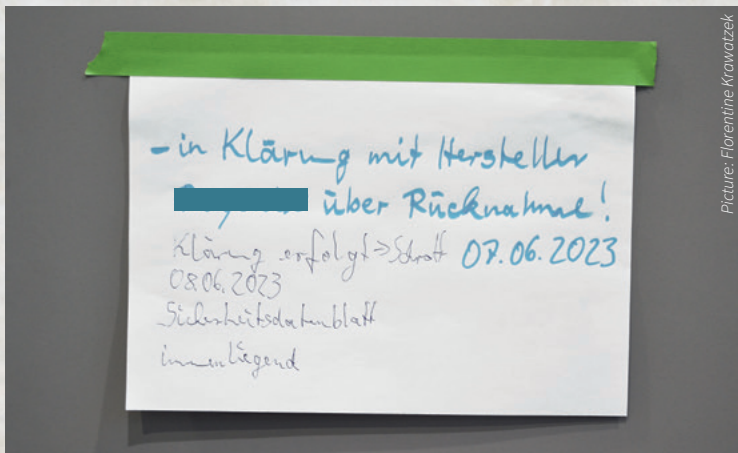 - in Klärung mit Hersteller
über Rücknahme!
Klärung erfolgt => Schrott 07.06.2023
08.06.2023
Sicherheitsdatenblatt
innenliegend
Picture: Florentine Krawatzek